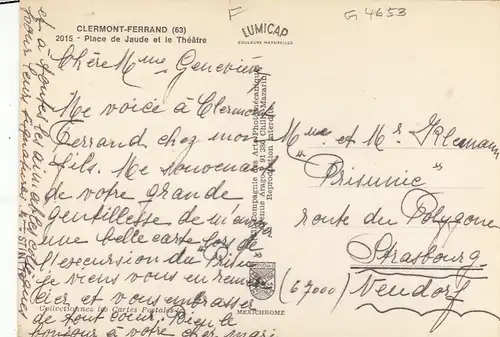 F
G 4653
CLERMONT-FERRAND (63)
2015 - Place de Jaude et le Théâtre
LUMICAP
COULEURS NATURELLES
Chère Mme Geneviève
Me voice à Clermont
Ferrand chez mon
fils. Me souvenant
de votre grande
gentillesse de m'
une belle carte lors de
l'excursion du "Prisu
je viens vous en remer
cier et vous embrasser
de tout coeur. Bien le
bonjour à votre cher mari
et à toutes les aimables collègues
pour leurs signatures.
Compagnie des Arts Photomécaniques
Reproduction interdite
MEXICHROME
Collectionnez les Cartes Postales
Mme et Mr Kleemann
"Prisunic"
route du Polygone
Strasbourg
(67000) Neudorf